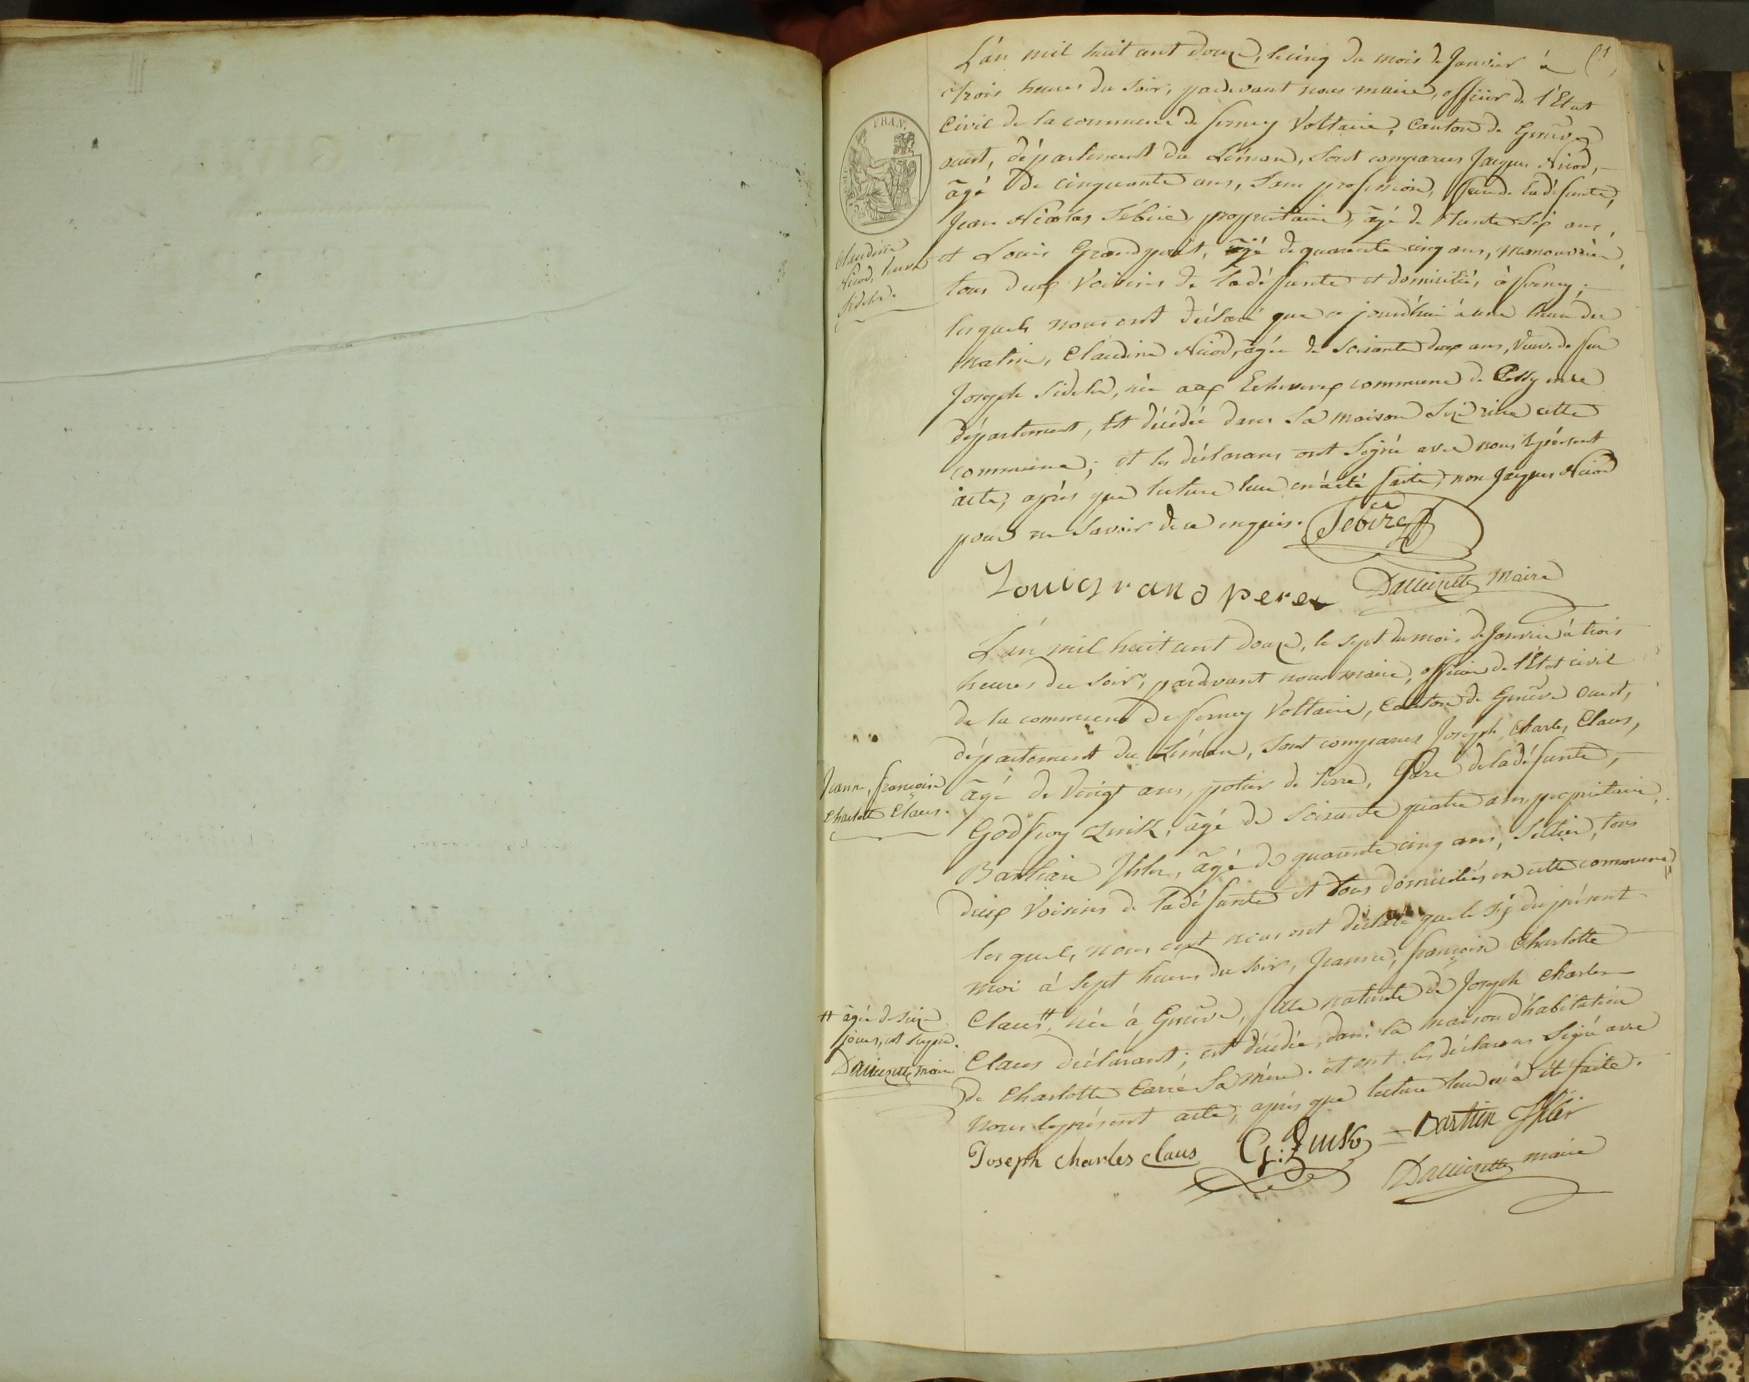 (1)
L'an mil huit cent douze, le cinq du mois de Janvier à
trois heures du soir, pardevant nous maire, officier de l'Etat
Civil de la commune de ferney Voltaire, Canton de Genêve
ouest, département du Léman, sont comparus Jacques Nicod,
âgé de cinquante ans, sans profession, de la défunte,
Jean Nicolas Sébire, propriétaire, âgé de trente six ans,
et Louis Grandperet, âgé de quarante cinq ans, manouvrier,
tous deux Voisins de la défunte et domiciliés à ferney;
lesquels nous ont déclaré que ce jourd'hui à une heure du
matin, Claudine Nicod, âgée de soixante deux ans, Veuve de feu
Joseph née aux Echenevex commune de Cessy même
département, est décédée dans sa maison rière cette
commune; et les déclarans ont signé avec nous le présent
acte, après que lecture leur en a été faite, non Jacques Nicod
pour ne savoir de ce enquis. Sebire
Louigrandperet Maire
Claudine
Nicod, Veuve
L'an mil huit cent douze, le sept du mois de Janvier à trois
heures du soir, pardevant nous maire, officier de l'Etat civil
de la commune de ferney Voltaire, Canton de Genêve ouest,
département du Léman, sont comparus Joseph, Charles, Claus,
âgé de Vingt ans, potier de terre, Père de la défunte,
Godfroy âgé de soixante quatre ans, propriétaire,
Bastian âgé de quarante cinq ans, Sellier, tous
deux Voisins de la défunte et tous domiciliés en cette commune
lesquels, nous ont nous ont déclaré que le six du présent
moi à sept heures du soir, Jeanne, françoise Charlotte
Claus #, née à Genêve, fille naturelle de Joseph Charles
Claus déclarant; est décédée dans la maison d'habitation
de Charlotte Carré sa mère. et ont les déclarans signé avec
nous le présent acte, après que lecture leur en a été faite.
Joseph charles claus Bastian
maire
Jeanne, françoise
Charlotte Claus.
# âgée de seize
jours,
maire
FRAN.